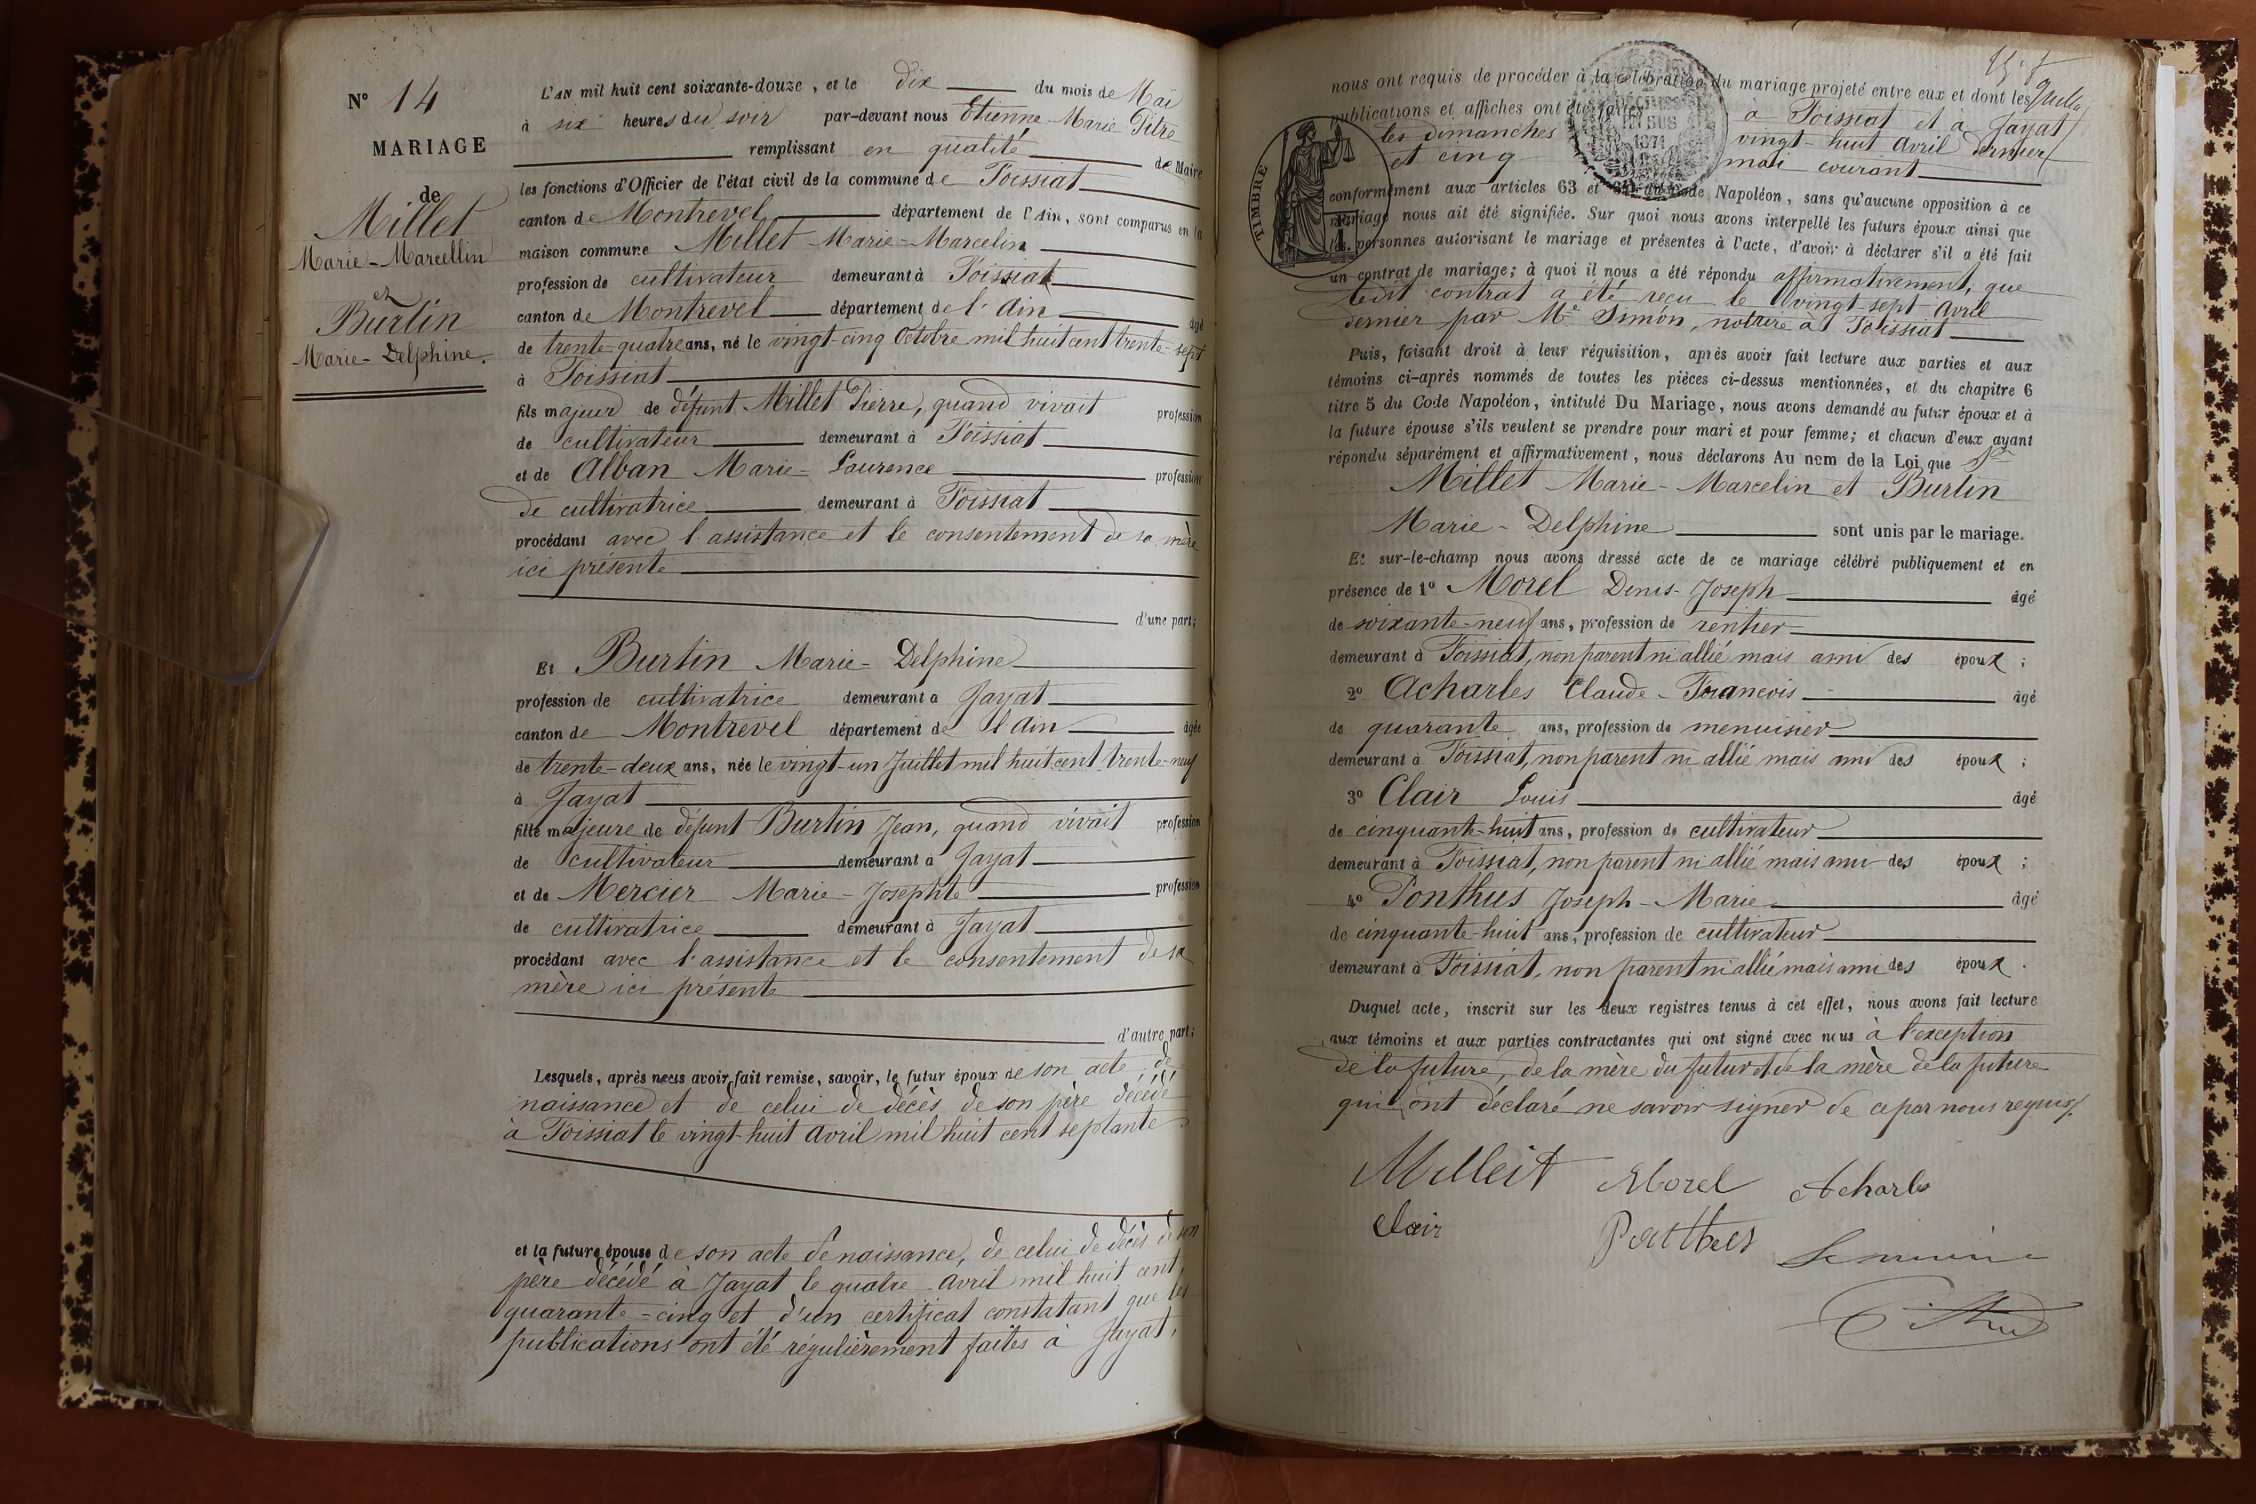 N° 14
MARIAGE
de
Millet
Marie-Marcellin
et
Burtin
Marie-Delphine.
L'AN mil huit cent soixante-douze, et le dix du mois de Mai
à six heures du soir par-devant nous Etienne-Marie Pitre
remplissant en qualité de Maire
les fonctions d'Officier de l'état civil de la commune de Foissiat
canton de Montrevel département de l'Ain, sont comparus en la
maison commune Millet Marie-Marcelin
profession de cultivateur demeurant à Foissiat
canton de Montrevel département de l'Ain âgé
de trente-quatre ans, né le vingt-cinq Octobre mil huit cent trente-sept
à Foissiat
fils majeur de défunt Millet Pierre, quand vivait profession
de cultivateur demeurant à Foissiat
et de Alban Marie-Laurence profession
de cultivatrice demeurant à Foissiat
procédant avec l'assistance et le consentement de sa mère
ici présente
d'une part;
Et Burtin Marie-Delphine
profession de cultivatrice demeurant à Jayat
canton de Montrevel département de l'Ain âgée
de trente-deux ans, née le vingt-un Juillet mil huit cent trente-neuf
à Jayat
fille majeure de défunt Burtin Jean, quand vivait profession
de cultivateur demeurant à Jayat
et de Mercier Marie-Josephte profession
de cultivatrice demeurant à Jayat
procédant avec l'assistance et le consentement de sa
mère ici présente
d'autre part;
Lesquels, après nous avoir fait remise, savoir, le futur époux de son acte de
naissance et de celui de décès de son père décédé
à Foissiat le vingt-huit Avril mil huit cent septante
et la future épouse de son acte de naissance, de celui de décès de son
père décédé à Jayat le quatre Avril mil huit cent
quarante-cinq et d'un certificat constatant que les
publications ont été régulièrement faites à Jayat,
nous ont requis de procéder à la célébration du mariage projeté entre eux et dont les
publications et affiches ont été faites à Foissiat et à Jayat
les dimanches vingt-huit Avril dernier
et cinq mai courant
TIMBRE
1871
conformément aux articles 63 et du Code Napoléon, sans qu'aucune opposition à ce
mariage nous ait été signifiée. Sur quoi nous avons interpellé les futurs époux ainsi que
les personnes autorisant le mariage et présentes à l'acte, d'avoir à déclarer s'il a été fait
un contrat de mariage; à quoi il nous a été répondu affirmativement, que
ledit contrat a été reçu le vingt-sept Avril
dernier par Me Simon, notaire à Foissiat
Puis, faisant droit à leur réquisition, après avoir fait lecture aux parties et aux
témoins ci-après nommés de toutes les pièces ci-dessus mentionnées, et du chapitre 6
titre 5 du Code Napoléon, intitulé Du Mariage, nous avons demandé au futur époux et à
la future épouse s'ils veulent se prendre pour mari et pour femme; et chacun d'eux ayant
répondu séparément et affirmativement, nous déclarons Au nom de la Loi que
Millet Marie-Marcelin et Burtin
Marie-Delphine sont unis par le mariage.
Et sur-le-champ nous avons dressé acte de ce mariage célébré publiquement et en
présence de 1° Morel Denis-Joseph âgé
de soixante-neuf ans, profession de rentier
demeurant à Foissiat, non parent ni allié mais ami des époux;
2° Acharles Claude-Francois âgé
de quarante ans, profession de menuisier
demeurant à Foissiat, non parent ni allié mais ami des époux;
3° Clair Louis âgé
de cinquante-huit ans, profession de cultivateur
demeurant à Foissiat, non parent ni allié mais ami des époux;
4° Ponthus Joseph-Marie âgé
de cinquante-huit ans, profession de cultivateur
demeurant à Foissiat, non parent ni allié mais ami des époux.
Duquel acte, inscrit sur les deux registres tenus à cet effet, nous avons fait lecture
aux témoins et aux parties contractantes qui ont signé avec nous à l'exception
de la future, de la mère du futur et de la mère de la future
qui ont déclaré ne savoir signer de ce par nous requis.
Milleit Morel Acharles
Clair